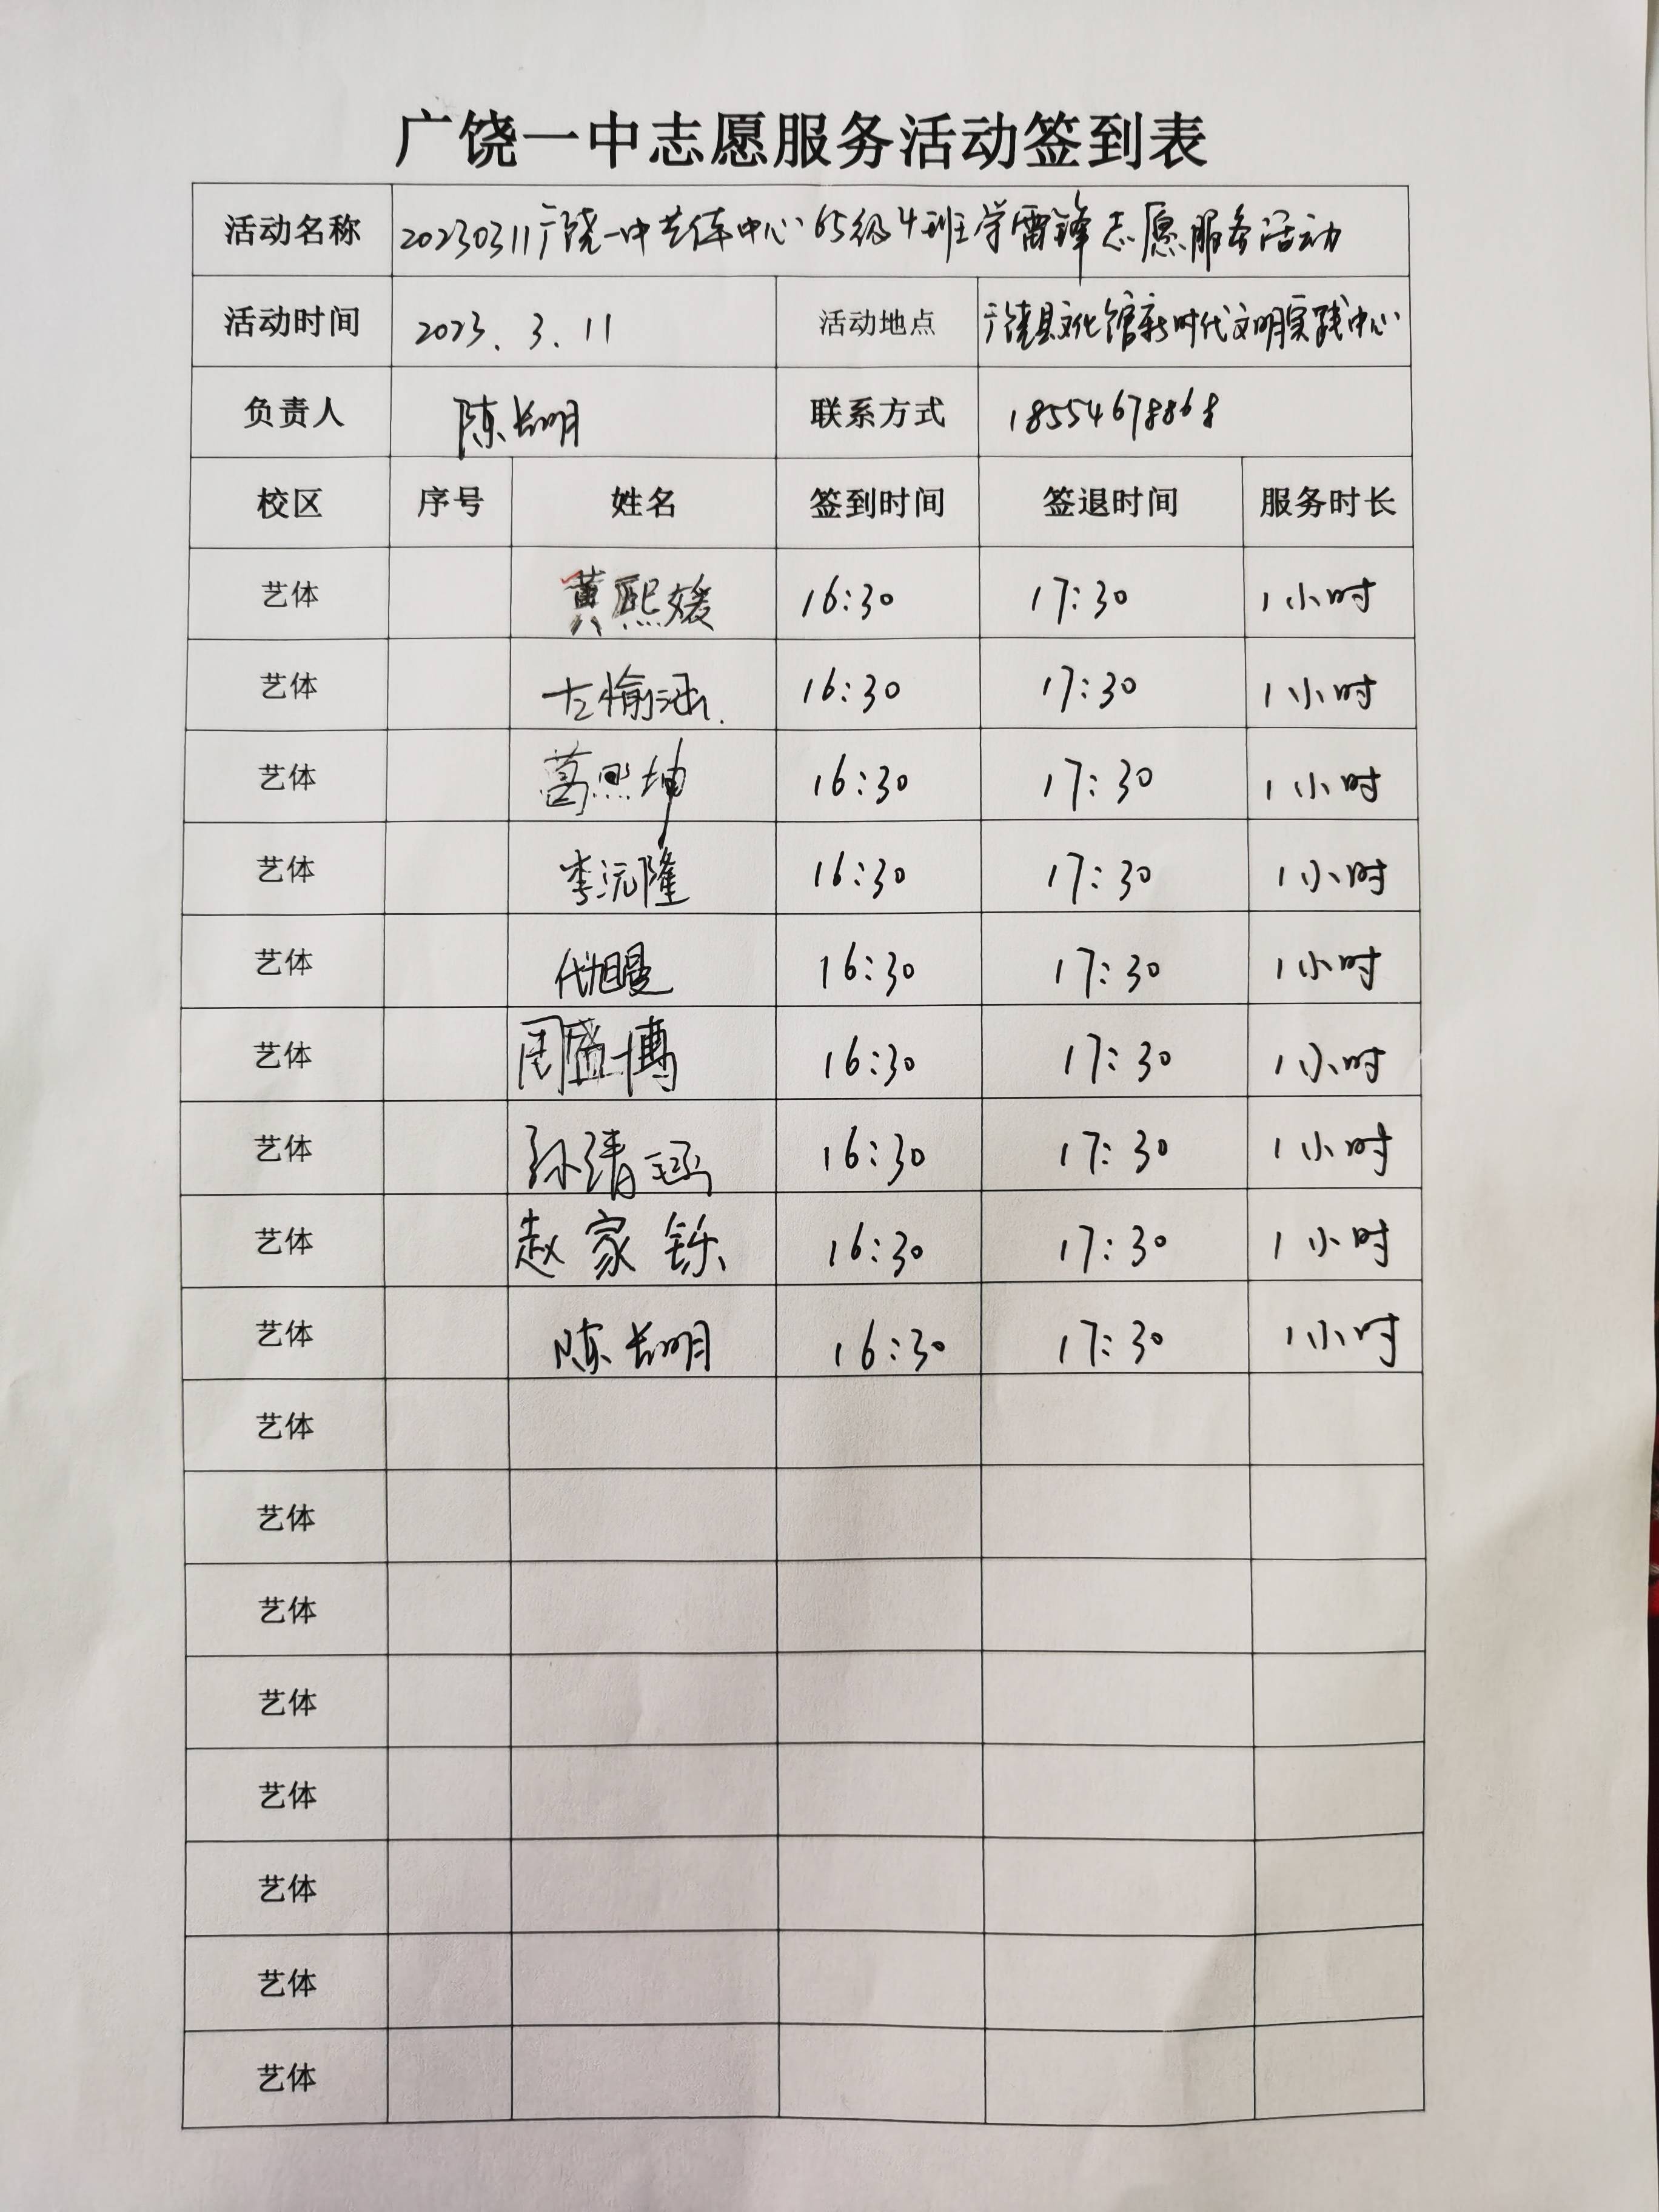 广饶一中志愿服务活动签到表
活动名称 20230311广饶一中艺体中心65级4班学雷锋志愿服务活动
活动时间 2023.3.11 活动地点 广饶县文化馆新时代文明实践中心
负责人 陈长明 联系方式 18554678868
校区 序号 姓名 签到时间 签退时间 服务时长
艺体 黄熙媛 16:30 17:30 1小时
艺体 左愉涵 16:30 17:30 1小时
艺体 葛熙坤 16:30 17:30 1小时
艺体 李沅隆 16:30 17:30 1小时
艺体 代旭曼 16:30 17:30 1小时
艺体 周盛博 16:30 17:30 1小时
艺体 孙清涵 16:30 17:30 1小时
艺体 赵家铄 16:30 17:30 1小时
艺体 陈长明 16:30 17:30 1小时
艺体
艺体
艺体
艺体
艺体
艺体
艺体
艺体